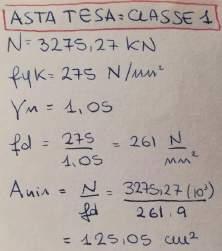 ASTA TESA = CLASSE 1
N = 3275,27 KN
fyk = 275 N/mm²
γm = 1,05
fd = 275/1,05 = 261 N/mm²
Amin = N/fd = 3275,27 (10³)/261.9
= 125,05 cm²